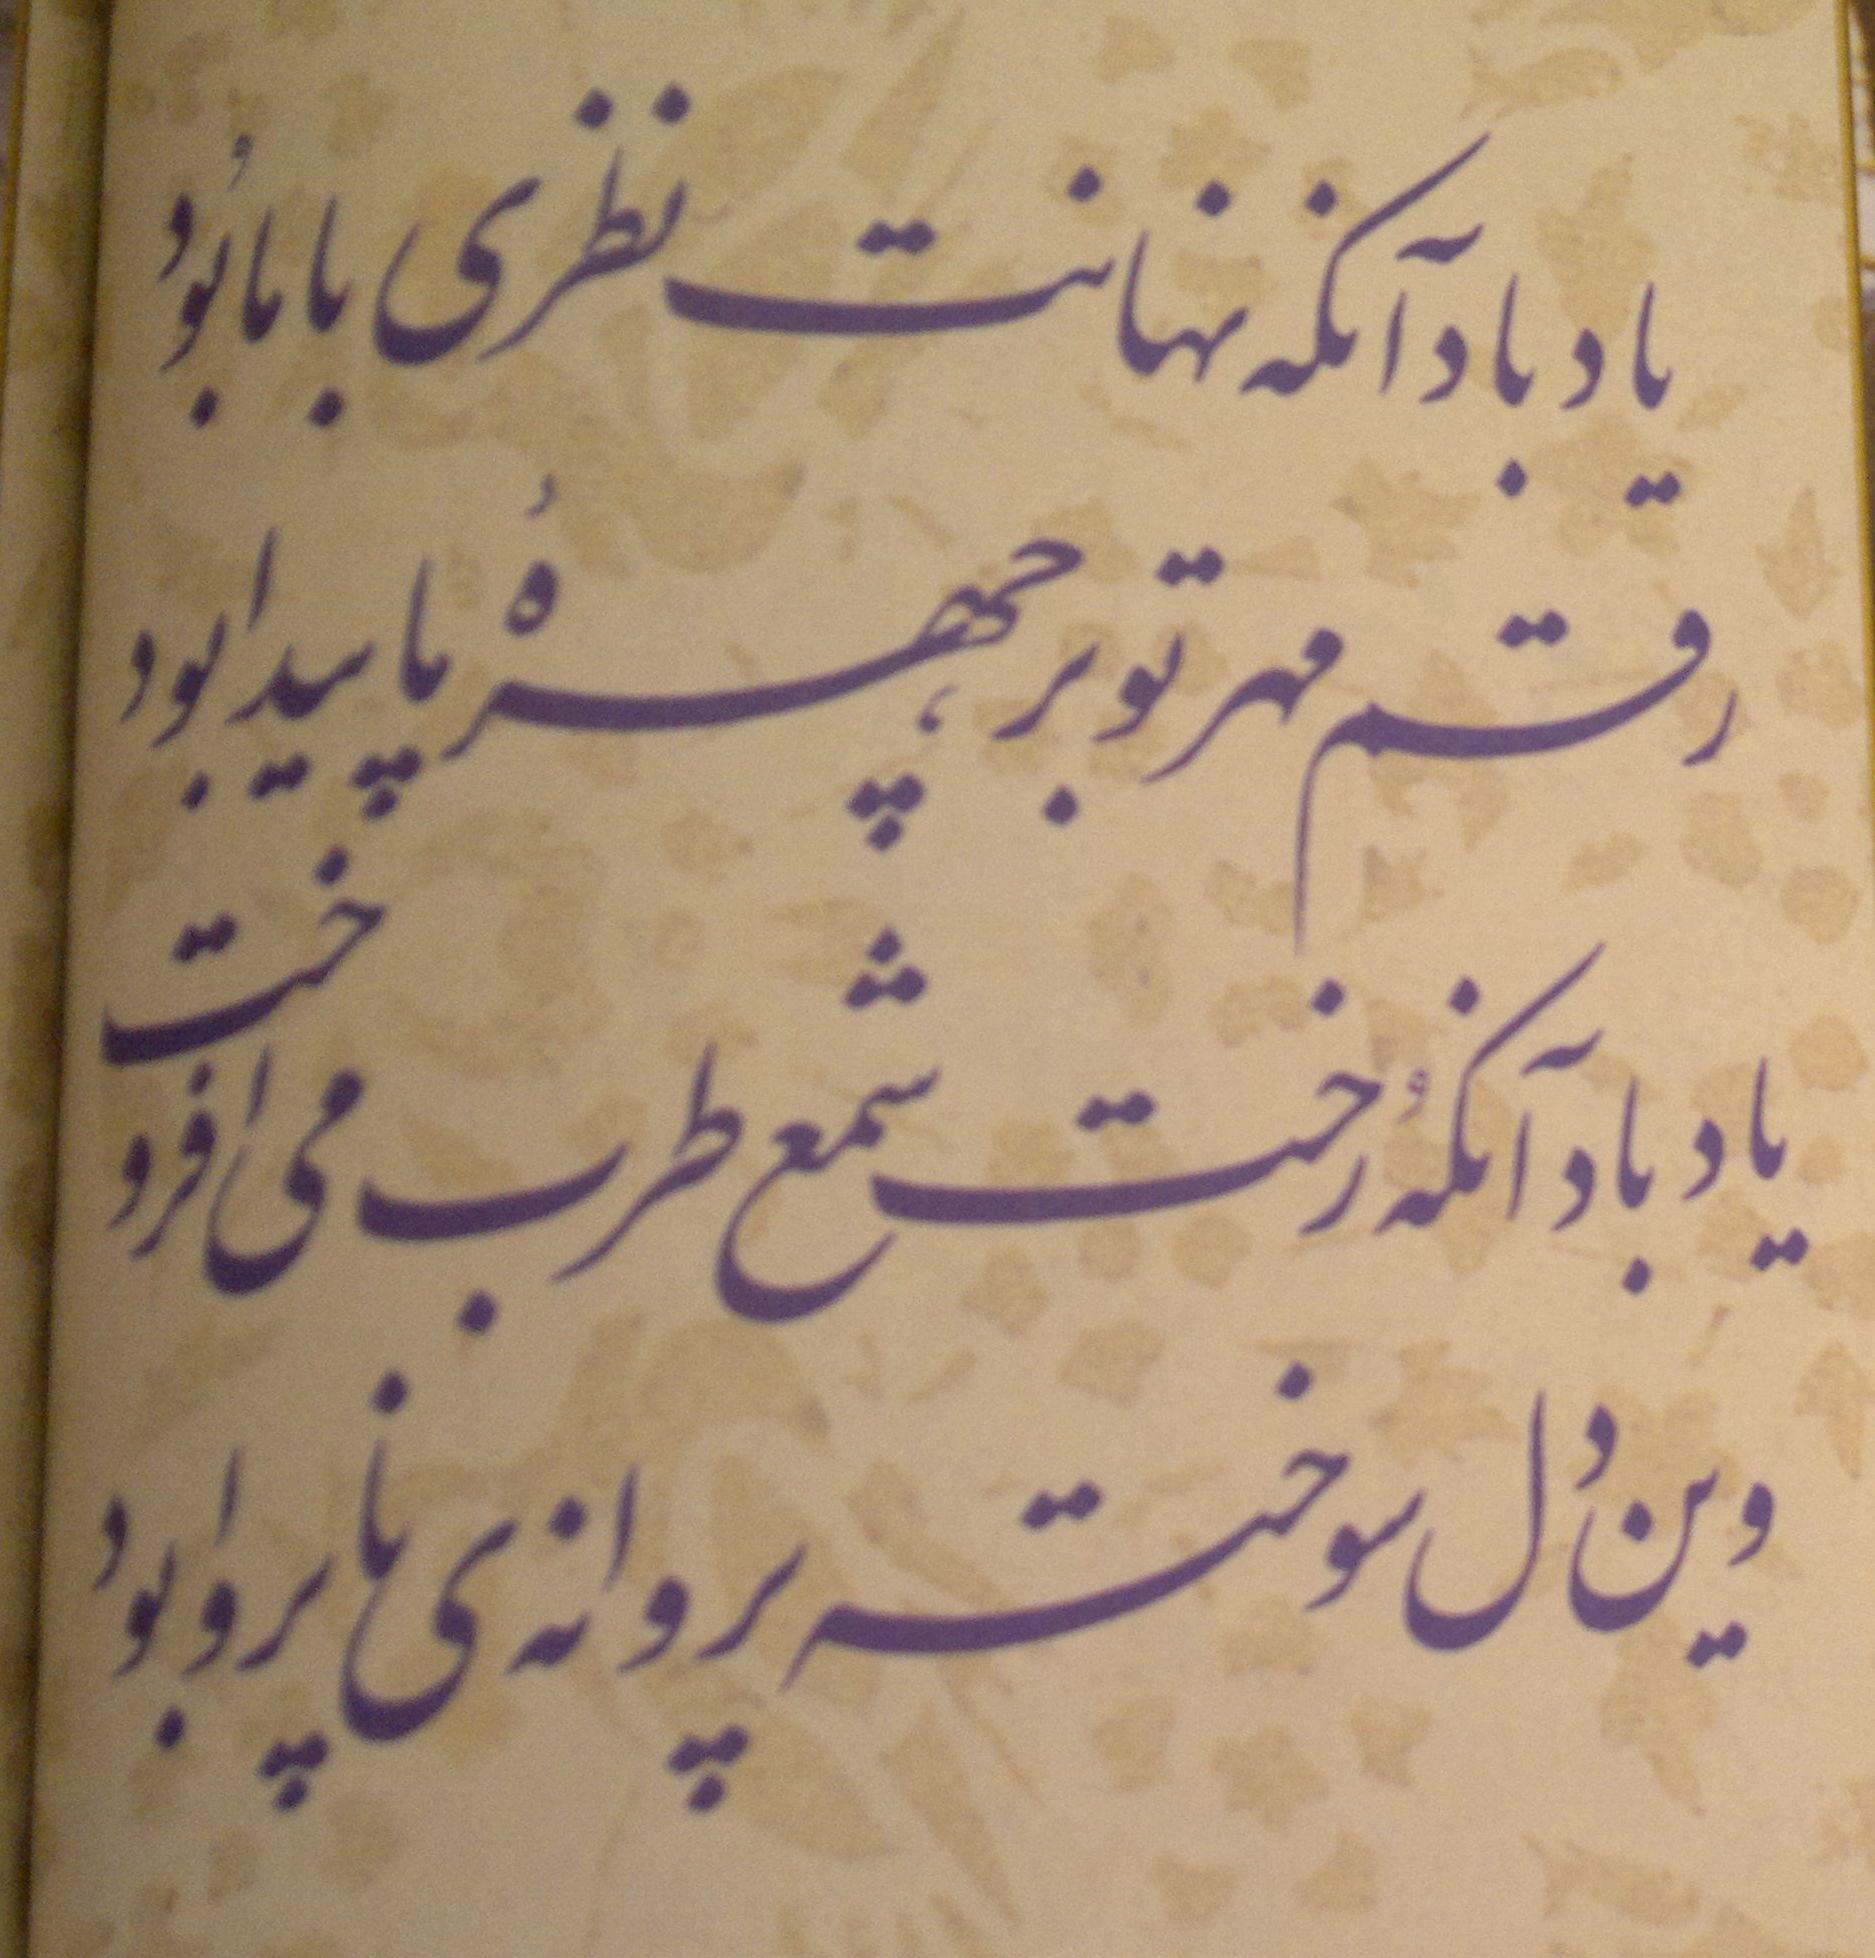 یاد باد آنکه نهانت نظری با ما بُود
رقم مهر تو بر چهرهٔ ما پیدا بود
یاد باد آنکه رُخت شمع طرب می افروخت
وین دل سوخته پروانه ی ناپروا بود